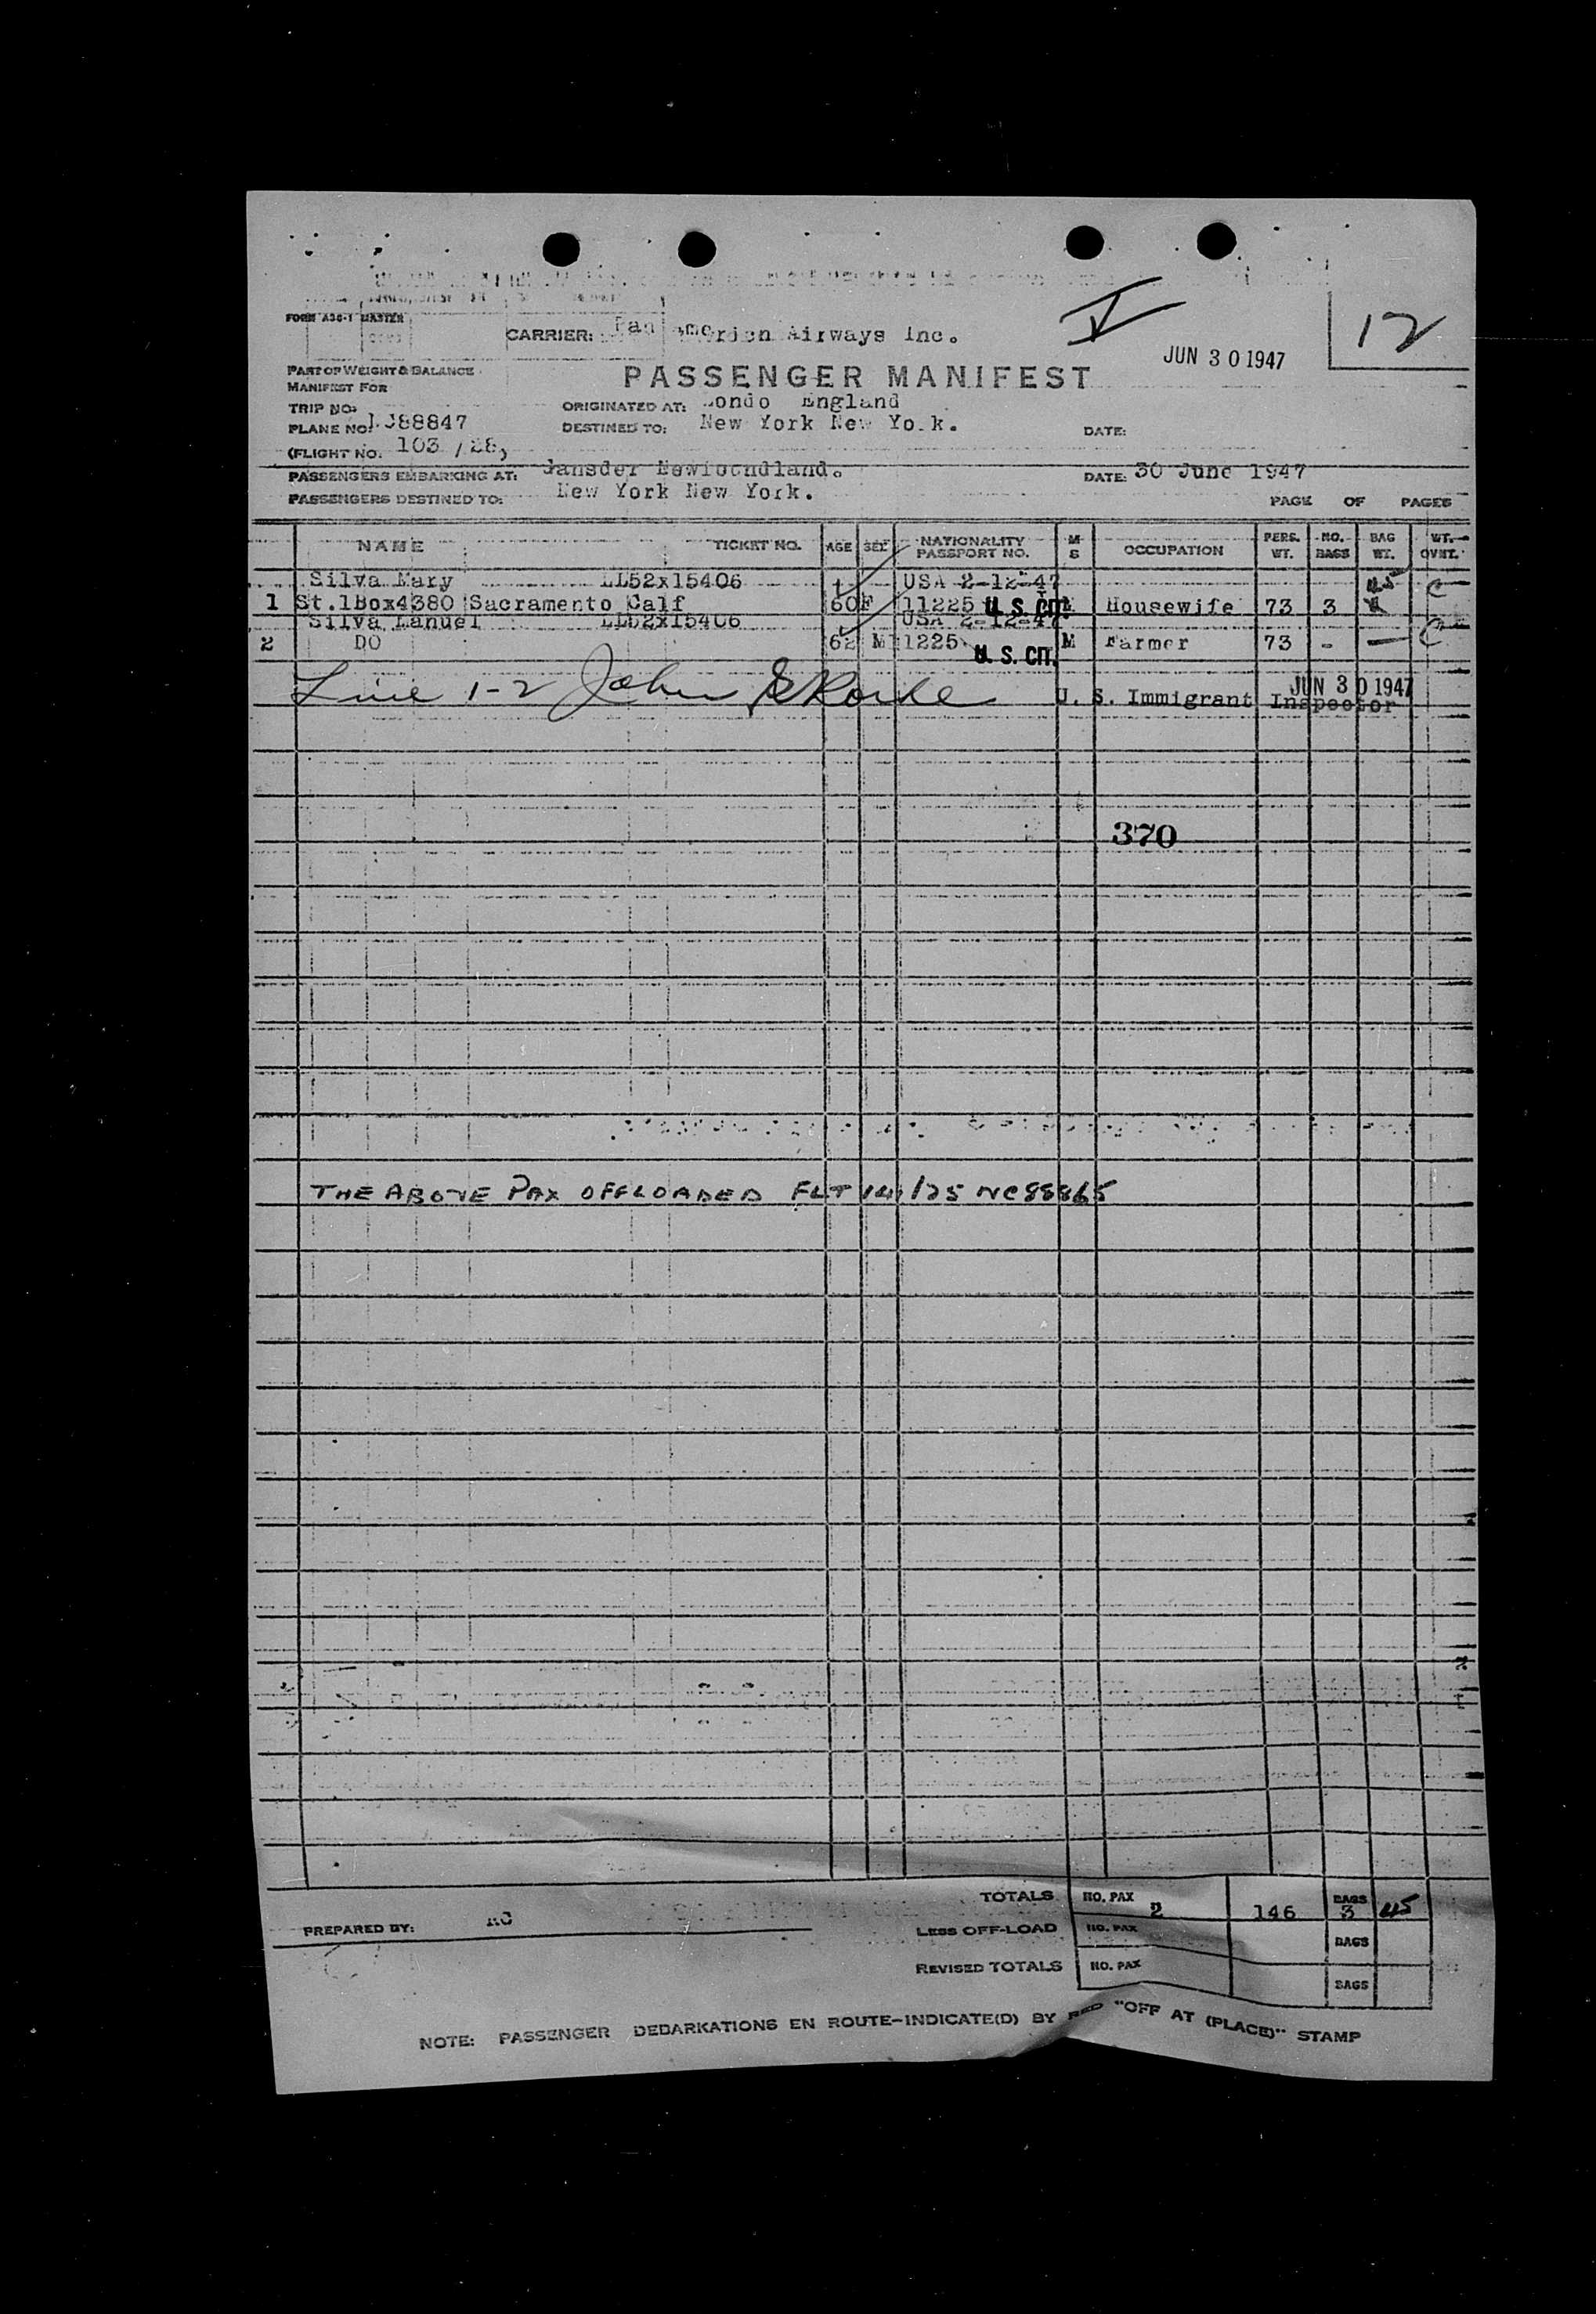 12
FORM A30-1 MASTER
CARRIER: Pan Amerien Airways Inc.
JUN 30 1947
PART OF WEIGHT & BALANCE
MANIFEST FOR
PASSENGER MANIFEST
TRIP NO.
ORIGINATED AT: Londo England
PLANE NO. 88847
DESTINED TO: New York New Yo.k.
DATE:
(FLIGHT NO. 103 /28,
PASSENGERS EMBARKING AT: Jansder Newfoundland.
DATE: 30 June 1947
PASSENGERS DESTINED TO: New York New York.
PAGE OF PAGES
NAME TICKET NO. AGE SEX NATIONALITY PASSPORT NO. M S OCCUPATION PERS. WT. NO. BAGS BAG WT. WT. OVNT.
Silva Mary LL52x15406 USA 2-12-47 45 C
1 St.1Box4380 Sacramento Calf 60 F 11225 U. S. CIT. Housewife 73 3
Silva Manuel LL52x15406 USA 2-12-47
2 DO 62 M 11225 U. S. CIT. M Farmer 73 - — C
Line 1-2 John U. S. Immigrant Inspector JUN 30 1947
370
THE ABOVE PAX OFFLOADED FLT /25 NC88865
TOTALS NO. PAX 2 146 BAGS 3 45
PREPARED BY:
LESS OFF-LOAD NO. PAX BAGS
REVISED TOTALS NO. PAX BAGS
NOTE: PASSENGER DEDARKATIONS EN ROUTE-INDICATE(D) BY RED "OFF AT (PLACE)" STAMP